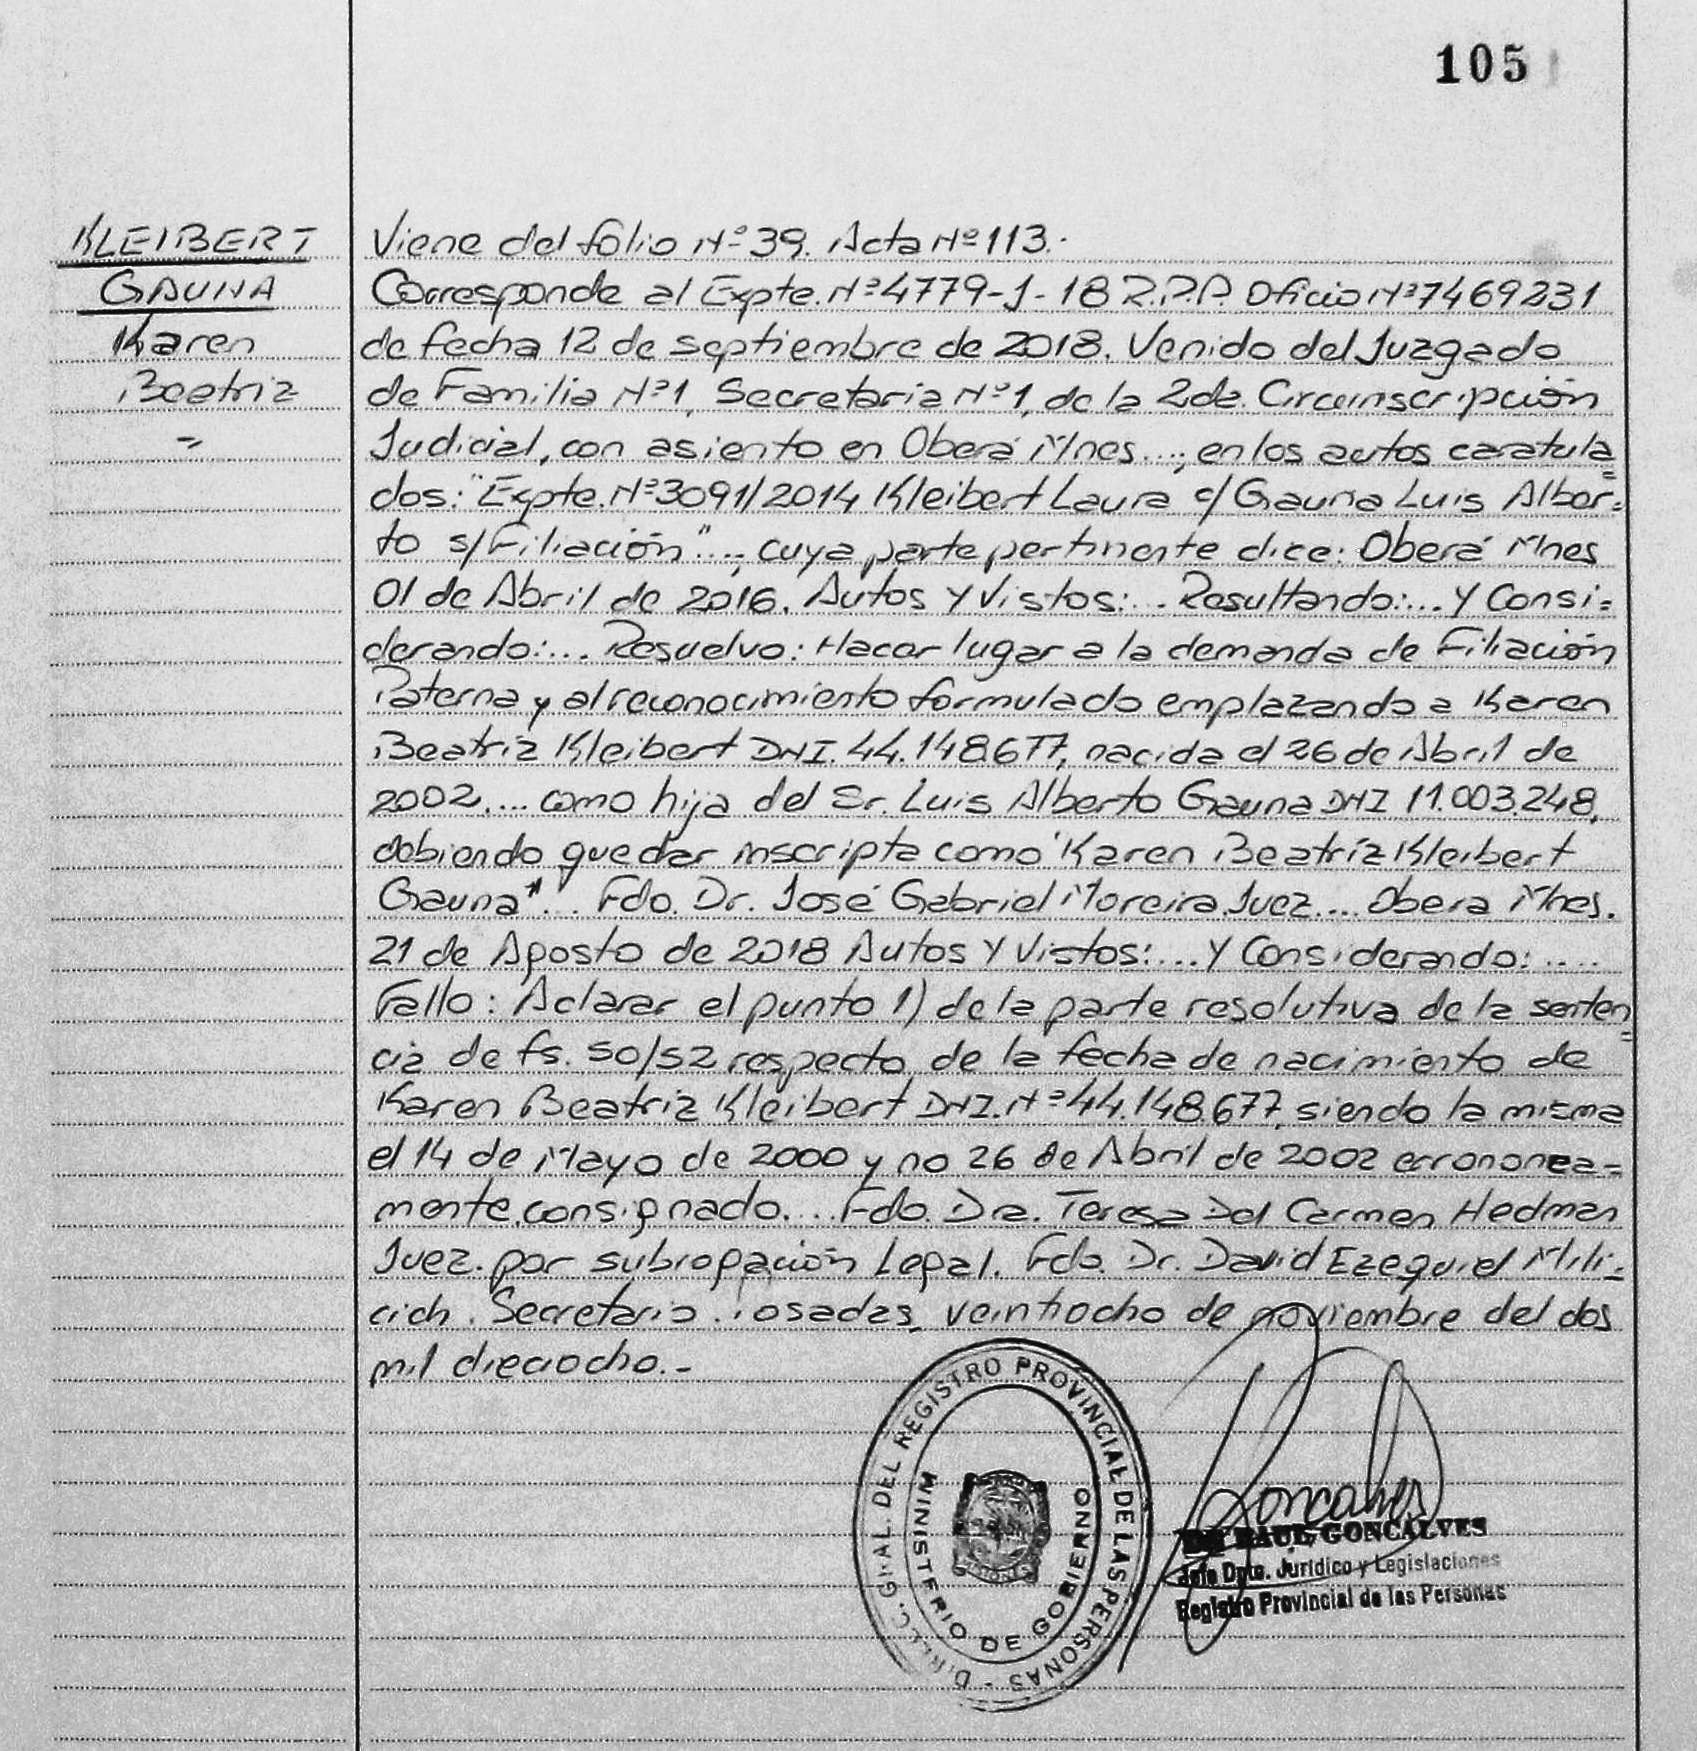 105
KLEIBERT
GAUNA
Karen
Beatriz
=
Viene del folio Nº 39. Acta Nº 113.-
Corresponde al Expte. Nº 4779-J-18 R.P.P. Oficio Nº 7469231
de fecha 12 de septiembre de 2018. Venido del Juzgado
de Familia Nº 1, Secretaria Nº 1, de la 2da. Circunscripción
Judicial, con asiento en Oberá Mnes...; en los autos caratula=
dos: "Expte. Nº 3091/2014 Kleibert Laura c/ Gauna Luis Alber=
to s/ Filiación"...; cuya parte pertinente dice: Oberá Mnes
01 de Abril de 2016. Autos y Vistos:... Resultando:... Y Consi=
derando:... Resuelvo: Hacer lugar a la demanda de Filiación
Paterna y al reconocimiento formulado emplazando a Karen
Beatriz Kleibert DNI. 44.148.677, nacida el 26 de Abril de
2002.... como hija del Sr. Luis Alberto Gauna DNI 11.003.248,
debiendo quedar inscripta como "Karen Beatríz Kleibert
Gauna"... Fdo. Dr. José Gabriel Moreira Juez.... Obera Mnes.
21 de Agosto de 2018 Autos Y Vistos:... Y Considerando:....
Fallo: Aclarar el punto 1) de la parte resolutiva de la senten=
cia de fs. 50/52 respecto de la fecha de nacimiento de
Karen Beatriz Kleibert DNI. Nº 44.148.677, siendo la misma
el 14 de Mayo de 2000 y no 26 de Abril de 2002 errononea=
mente consignado.... Fdo. Dra. Teresa Del Carmen Hedman
Juez. por subrogación Legal. Fdo. Dr. David Ezequiel Mili=
cich. Secretario. Posadas, veintiocho de noviembre del dos
mil dieciocho.-
DIRECC. GRAL. DEL REGISTRO PROVINCIAL DE LAS PERSONAS -
MINISTERIO DE GOBIERNO
MISIONES
Goncalves
RAUL GONCALVES
Jefe Dpto. Jurídico y Legislaciones
Registro Provincial de las Personas